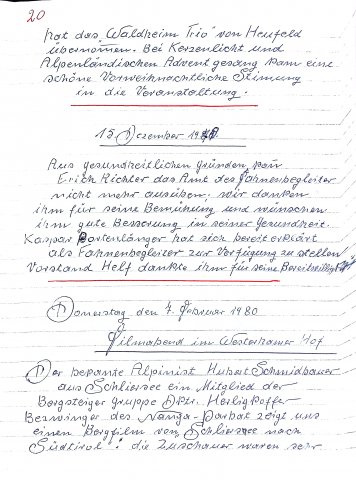 20
hat das "Waldheim Trio" von Heufeld
übernommen. Bei Kerzenlicht und
Alpenländischen Advent gesang kam eine
schöne Vorweihnachtliche Stimmung
in die Veranstaltung.
15 Dezember 19
Aus gesundheitlichen gründen kan
Erich Richter das Amt des Fahnenbegleiter
nicht mehr ausüben, wir danken
ihm für seine Bemühung und wünschen
ihm gute Besserung in seiner Gesundheit.
Kaspar hat sich bereit erklärt
als Fahnenbegleiter zur Verfügung zu stellen
Vorstand Helf dankte ihm für seine Bereitwilligkeit
Donnerstag den 7. Februar 1980
Filmabend im Westerhamer Hof
Der bekante Alpinist Hubert Schmidbauer
aus Schliersee ein Mitglied der
Bergsteiger Gruppe Dktr. Herligkoffer
Bezwinger des Nanga-Parbat zeigt uns
einen Bergfilm von Schliersee nach
Südtirol! die Zuschauer waren sehr